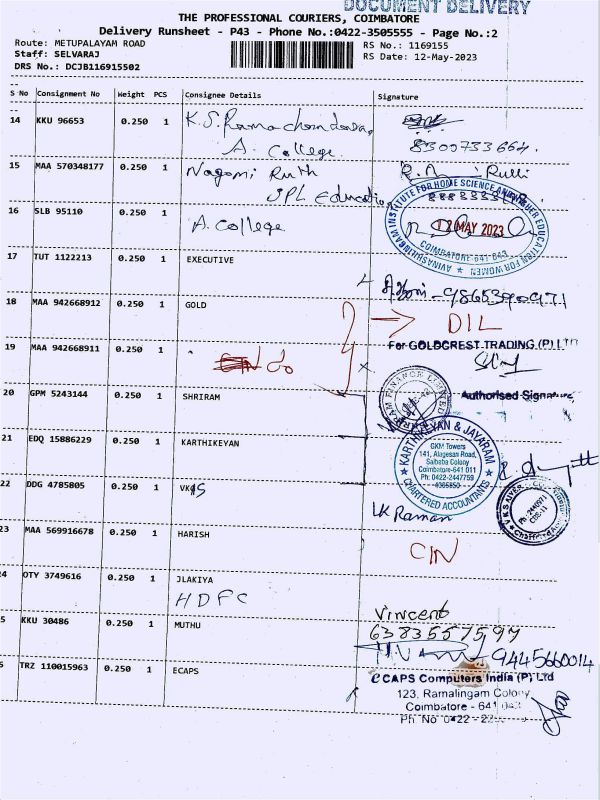 DOCUMENT DELIVERY
THE PROFESSIONAL COURIERS, COIMBATORE
Delivery Runsheet - P43 - Phone No.:0422-3505555 - Page No.:2
Route: METUPALAYAM ROAD
RS No.: 1169155
Staff: SELVARAJ
RS Date: 12-May-2023
DRS No.: DCJB116915502
S No Consignment No Weight PCS Consignee Details Signature
14 KKU 96653 0.250 1 K.S.Ramachandran,
A. College
8300733664.
15 MAA 570348177 0.250 1 Nagomi Ruth
JPL Education
16 SLB 95110 0.250 1 A. College
AVINASHILINGAM INSTITUTE FOR HOME SCIENCE AND HIGHER EDUCATION FOR WOMEN
12 MAY 2023
COIMBATORE-641 043
17 TUT 1122213 0.250 1 EXECUTIVE
18 MAA 942668912 0.250 1 GOLD
DIL
For GOLDCREST TRADING (P) LTD
19 MAA 942668911 0.250 1
Authorised Signature
20 GPM 5243144 0.250 1 SHRIRAM
21 EDQ 15886229 0.250 1 KARTHIKEYAN
KARTHIKEYAN & JAYARAM
GKM Towers
141, Alagesan Road,
Saibaba Colony
Coimbatore-641 011
Ph: 0422-2447759
4366850
CHARTERED ACCOUNTANTS
22 DDG 4785805 0.250 1 VKS
VK Raman
23 MAA 569916678 0.250 1 HARISH
CIN
24 OTY 3749616 0.250 1 JLAKIYA
HDFC
Vincent
25 KKU 30486 0.250 1 MUTHU
6383557597
9445660014
26 TRZ 110015963 0.250 1 ECAPS
eCAPS Computers India (P) Ltd
123, Ramalingam Colony
Coimbatore - 641 043
Ph No 0422 - 22